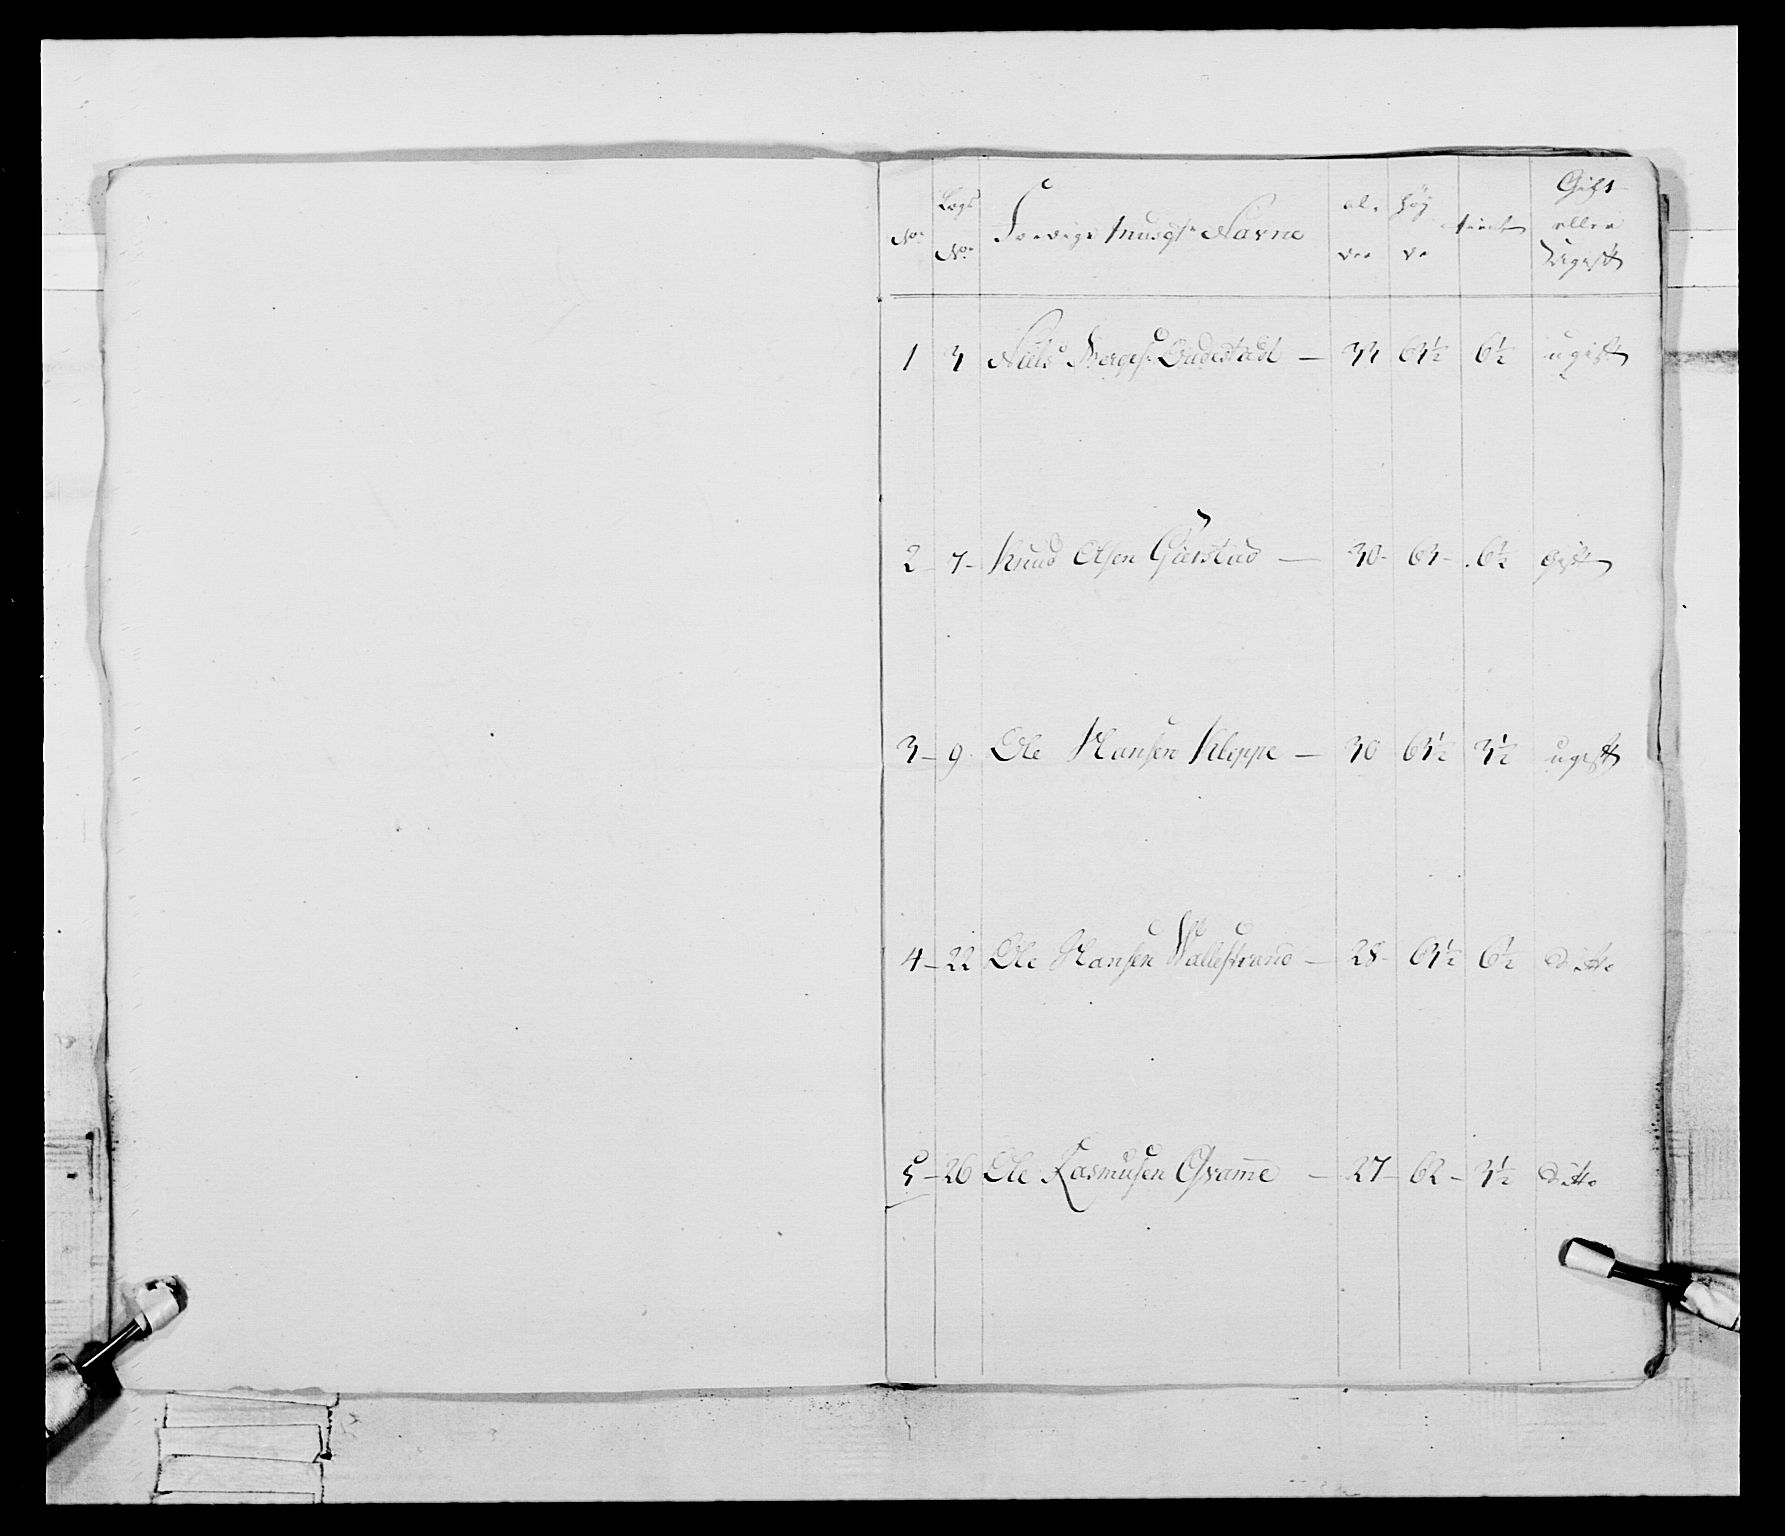 No. Lægs No. Forrige Musqtr Navne alder høyde tient Gift eller Ugift
1 3 Niels Budestad — 33 63½ 6½ ugift
2 – 7 – Knud Olsen Gierstad — 30 – 63 – 6½ Gift
3 – 9 Ole Hansen Kleppe — 30 63½ 3½ ugift
4 – 22 Ole Hansen Wallestrand — 28 – 63½ 6½ ditto
5 – 26 Ole Rasmusen — 27 – 62 – 3½ ditto